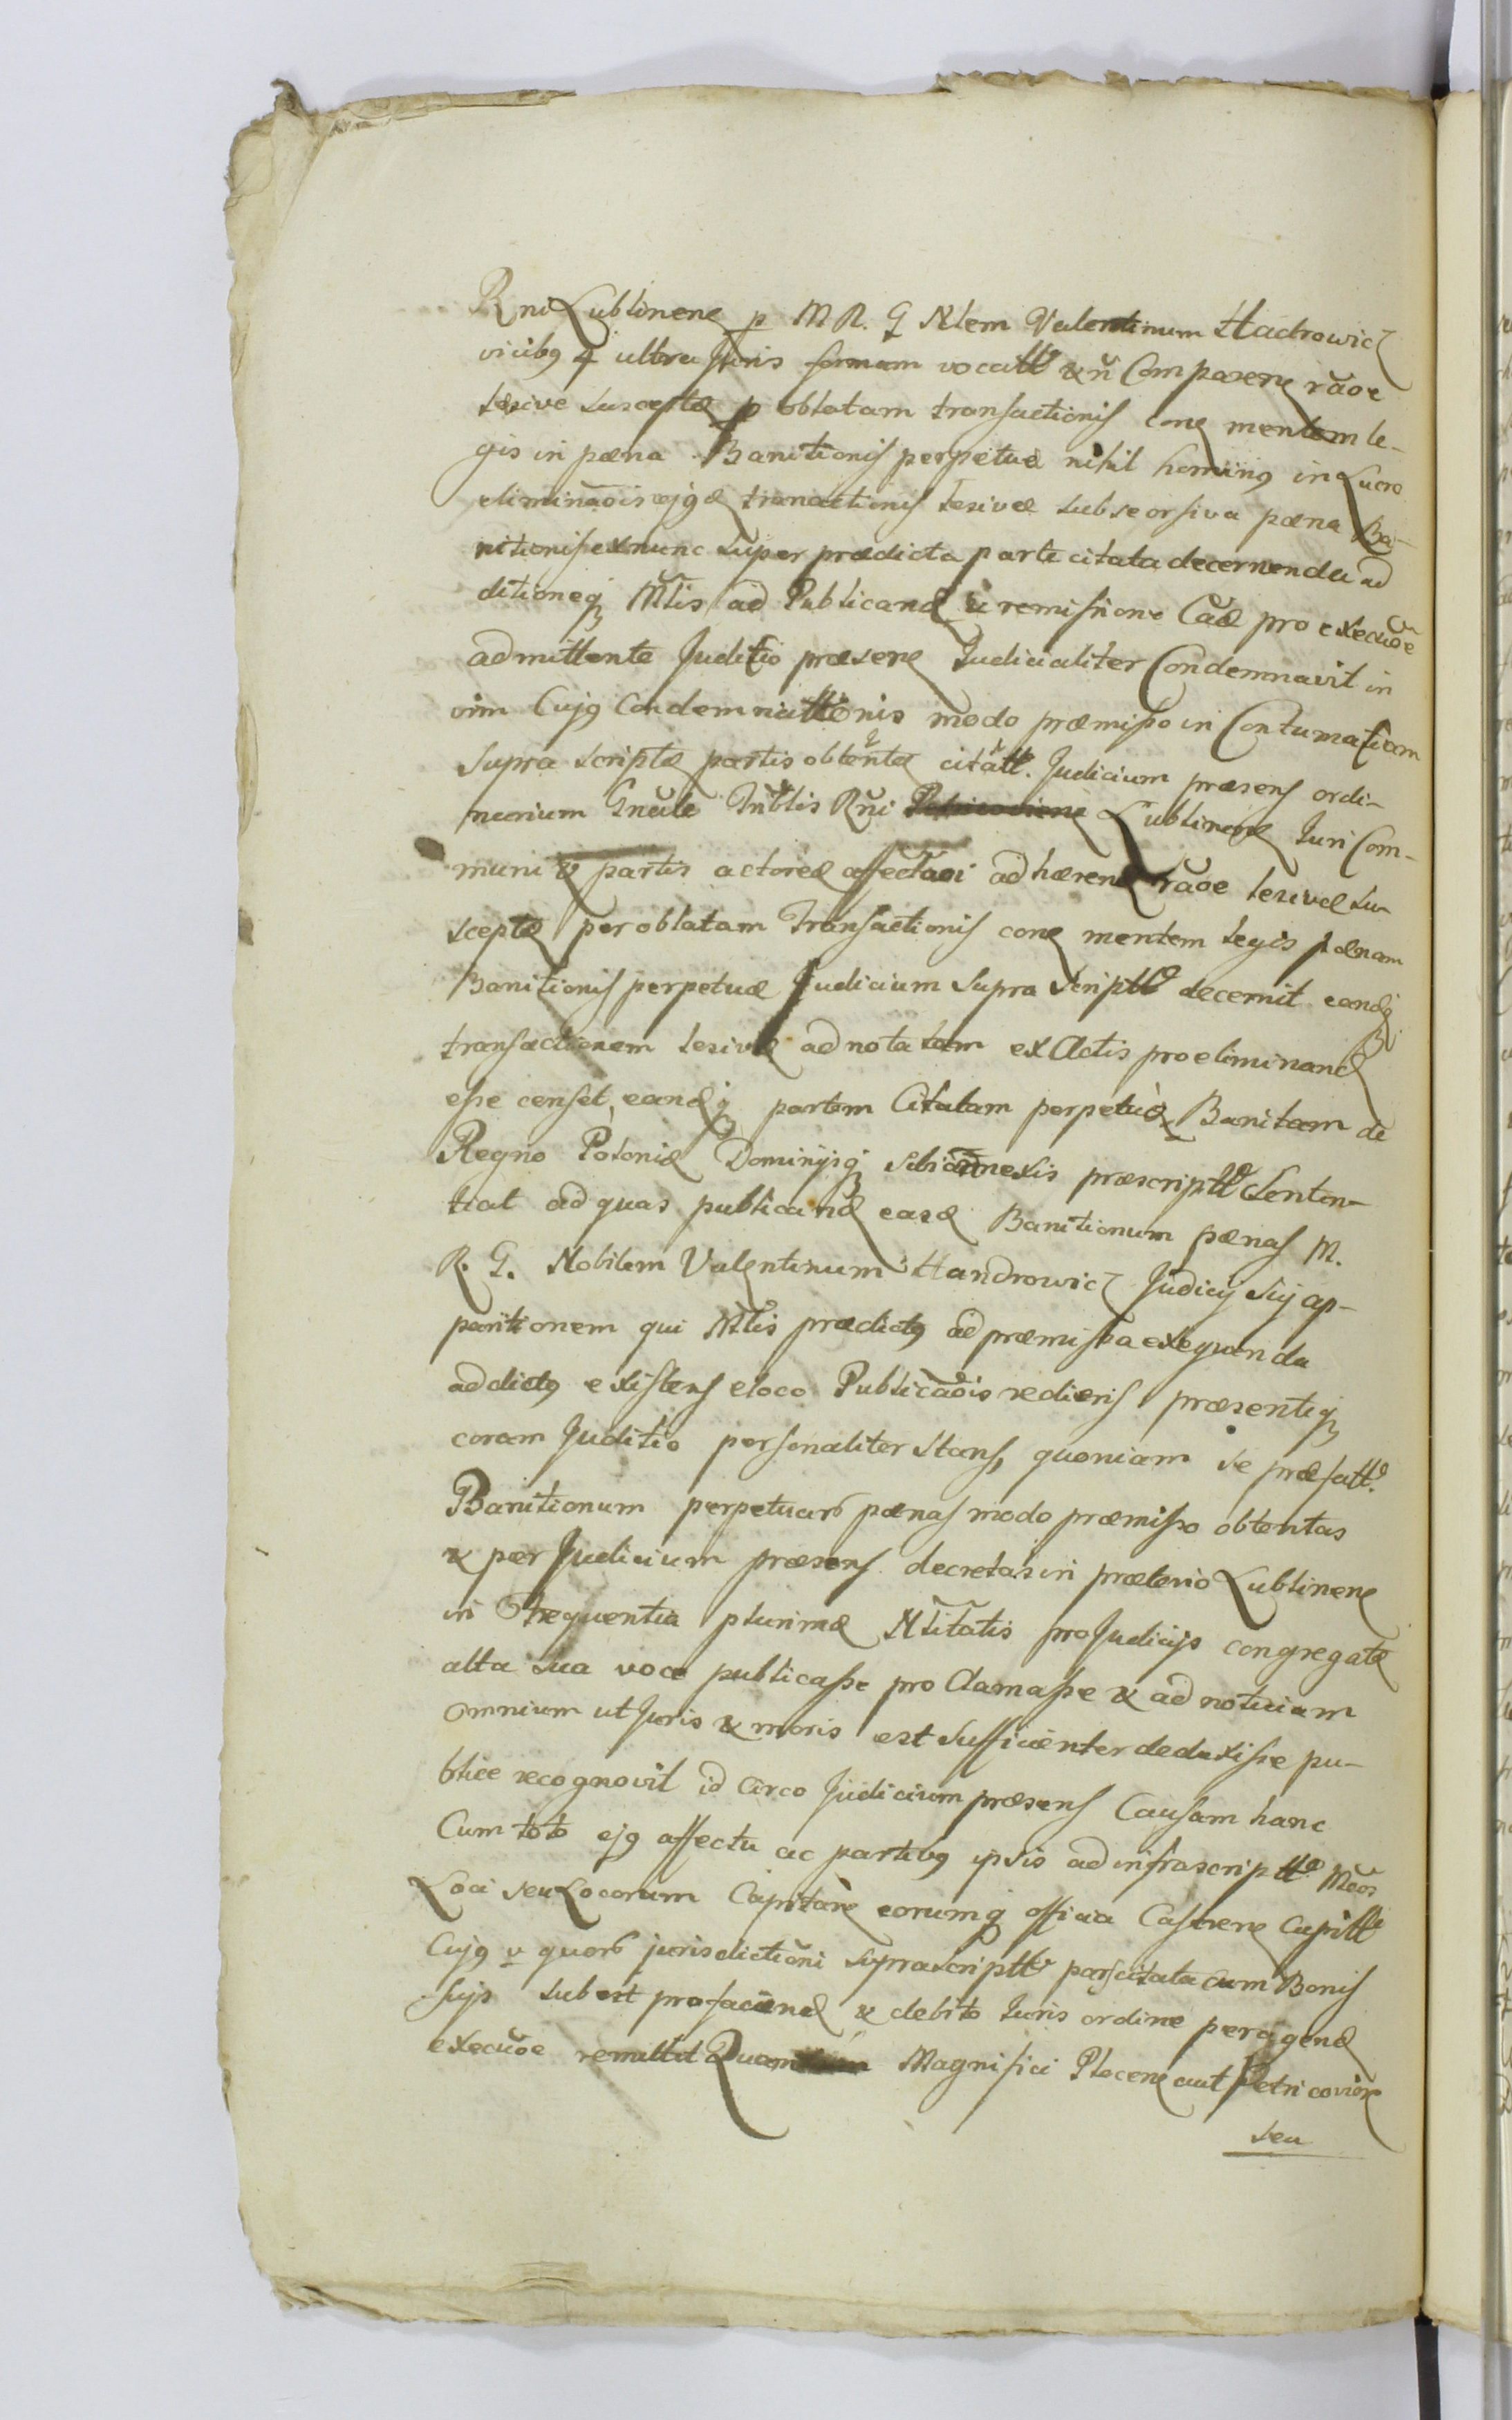 Rni Lublinens p M R. G Nlem Valentinum Hadrowicz
vicibus 4 ultra Juris formam vocatt & ñ Comparens rãoe
lesivæ susceptæ p oblatam transactionis cons mentem le-
gis in pæna Banitionis perpetuæ nihil hominus in Lucro
eliminãois ejusd transactionis lesivæ sub seorsiva pæna Ba-
nitionis exnunc super prædicta parte citata decernenda ad
ditioneq Mtlis ad Publicand u remissione Cãæ pro execuõe
admittente Juditio præsens Judicialiter Condemnavit in
vim Cujus Condemnattionis modo præmisso in Contumatiam
Supra scriptæ partis obtentæ citatt. Judicium præsens ordi-
narium Gnale Tribtlis Rni Lublinens Juri Com-
muni & partis actoreæ affectãoi adhærens rãoe lesivæ su-
sceptæ per oblatam Transactionis cons mentem legis pænam
Banitionis perpetuæ Judicium Supra Scriptt decernit eandq
transactionem lesivæ adnotatam ex Actis pro eliminand
esse censet, eandq partem Citatam perpetuò Banitam de
Regno Poloniæ Dominijsq sibi annexis præscriptt Senten-
tiat ad quas publicand easd Banitionum pænas M.
R. G. Nobilem Valentinum Handrowicz Judicij sui ap-
paritionem qui Mtlis prædictus ad præmissa exequenda
addictus existens eloco Publicãois rediens præsentiq
coram Juditio personaliter stans, quoniam se præfatt.
Banitionum perpetuar pænas modo præmisso obtentas
& per Judicium præsens decretas in prætorio Lublinens
in Frequentia plurimæ Nlitatis pro Judicijs congregatæ
alta sua voce publicasse proclamasse & ad noticiam
omnium ut Juris & moris est sufficienter deduxisse pu-
blice recognovit id circo Judicium præsens Causam hanc
Cum toto ejus affectu ac partibus ipsis ad infrascriptt Mcos
Loci seu Locorum Capitãns eorumq officia Castrens Capitt
Cujus v quor jurisdictioni suprascriptt pars citata cum Bonis
suis subest pro faciend & debito Juris ordine peragend
execuõe remittit Magnifici Plocens aut Petricoviens
seu